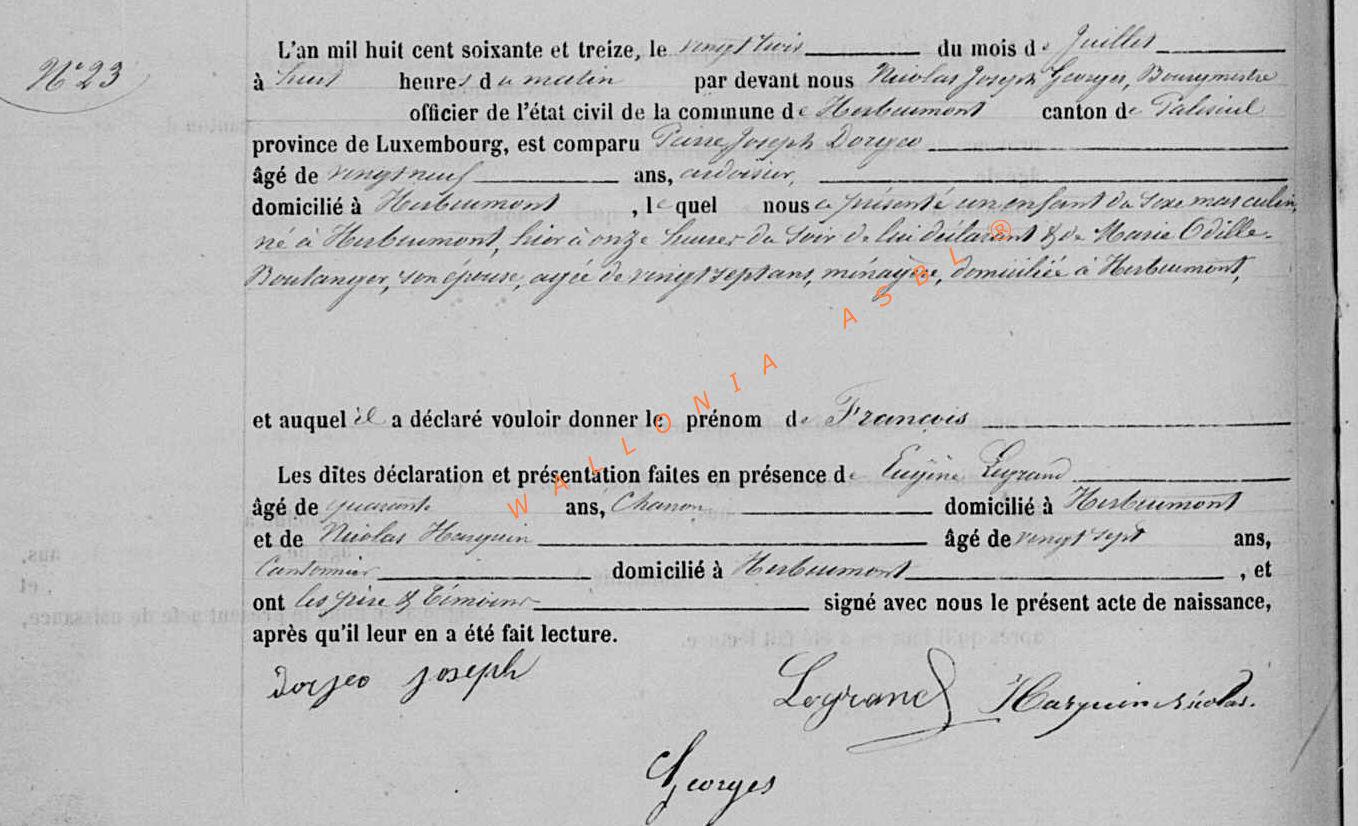 N° 23
L'an mil huit cent soixante et treize, le vingt trois du mois de Juillet
à huit heures du matin par devant nous Nicolas Joseph Georges, Bourgmestre
officier de l'état civil de la commune de Herbeumont canton de Paliseul
province de Luxembourg, est comparu Pierre Joseph Dorjeo
âgé de vingt neuf ans, ardoisier,
domicilié à Herbeumont, lequel nous a présenté un enfant du sexe masculin,
né à Herbeumont, hier à onze heures du soir de lui déclarant & de Marie Odille
Boulanger, son épouse, agée de vingt sept ans, ménagère, domiciliée à Herbeumont,
et auquel il a déclaré vouloir donner le prénom de François
Les dites déclaration et présentation faites en présence de Eugène Legrand
âgé de quarante ans, Charron domicilié à Herbeumont
et de Nicolas Harquin âgé de vingt sept ans,
Cantonnier domicilié à Herbeumont, et
ont les père & témoins signé avec nous le présent acte de naissance,
après qu'il leur en a été fait lecture.
Dorjeo Joseph Legrand Harquin Nicolas.
Georges
WALLONIA ASBL ®